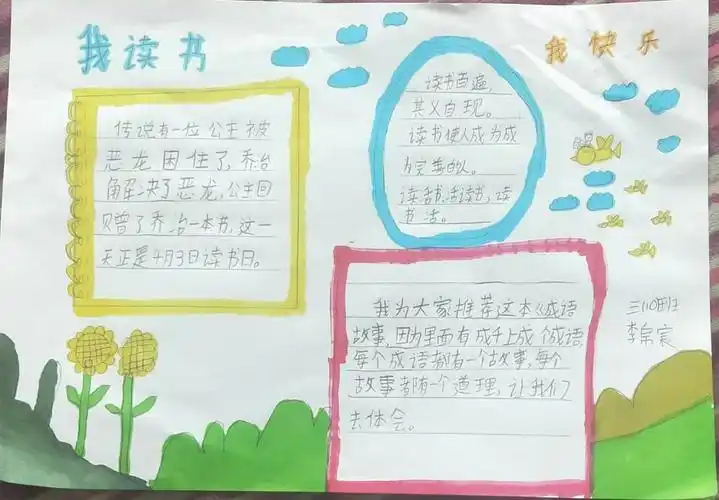 我读书
我快乐
传说有一位公主被
恶龙困住了,乔治
解决了恶龙,公主回
赠了乔治一本书,这一
天正是4月3日读书日。
读书百遍,
其义自现。
读书使人成为成
为完美的人。
读活书,活读书,读
书活。
我为大家推荐这本《成语
故事,因为里面有成千上成个成语,
每个成语都有一个故事,每个
故事都有一个道理,让我们
去体会。
三(10)班
李帛宸